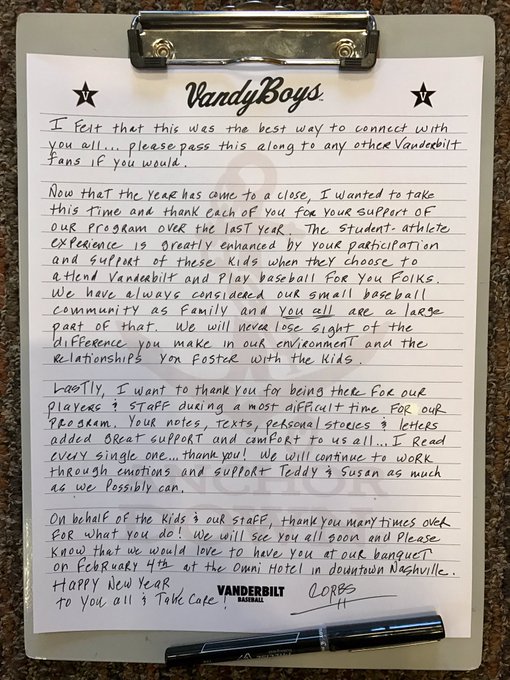 VandyBoys
I felt that this was the best way to connect with
you all... please pass this along to any other Vanderbilt
fans if you would.
Now that the year has come to a close, I wanted to take
this time and thank each of you for your support of
our program over the last year. The student-athlete
experience is greatly enhanced by your participation
and support of these kids when they choose to
attend Vanderbilt and play baseball for you folks.
We have always considered our small baseball
community as family and you all are a large
part of that. We will never lose sight of the
difference you make in our environment and the
relationships you foster with the kids.
Lastly, I want to thank you for being there for our
players & staff during a most difficult time for our
program. Your notes, texts, personal stories & letters
added great support and comfort to us all... I read
every single one... thank you! We will continue to work
through emotions and support Teddy & Susan as much
as we possibly can.
ANCHOR
On behalf of the kids & our staff, thank you many times over
for what you do! We will see you all soon and please
know that we would love to have you at our banquet
on February 4th at the Omni Hotel in downtown Nashville.
Happy New Year
to you all & Take Care!
VANDERBILT
BASEBALL
CORBS
11